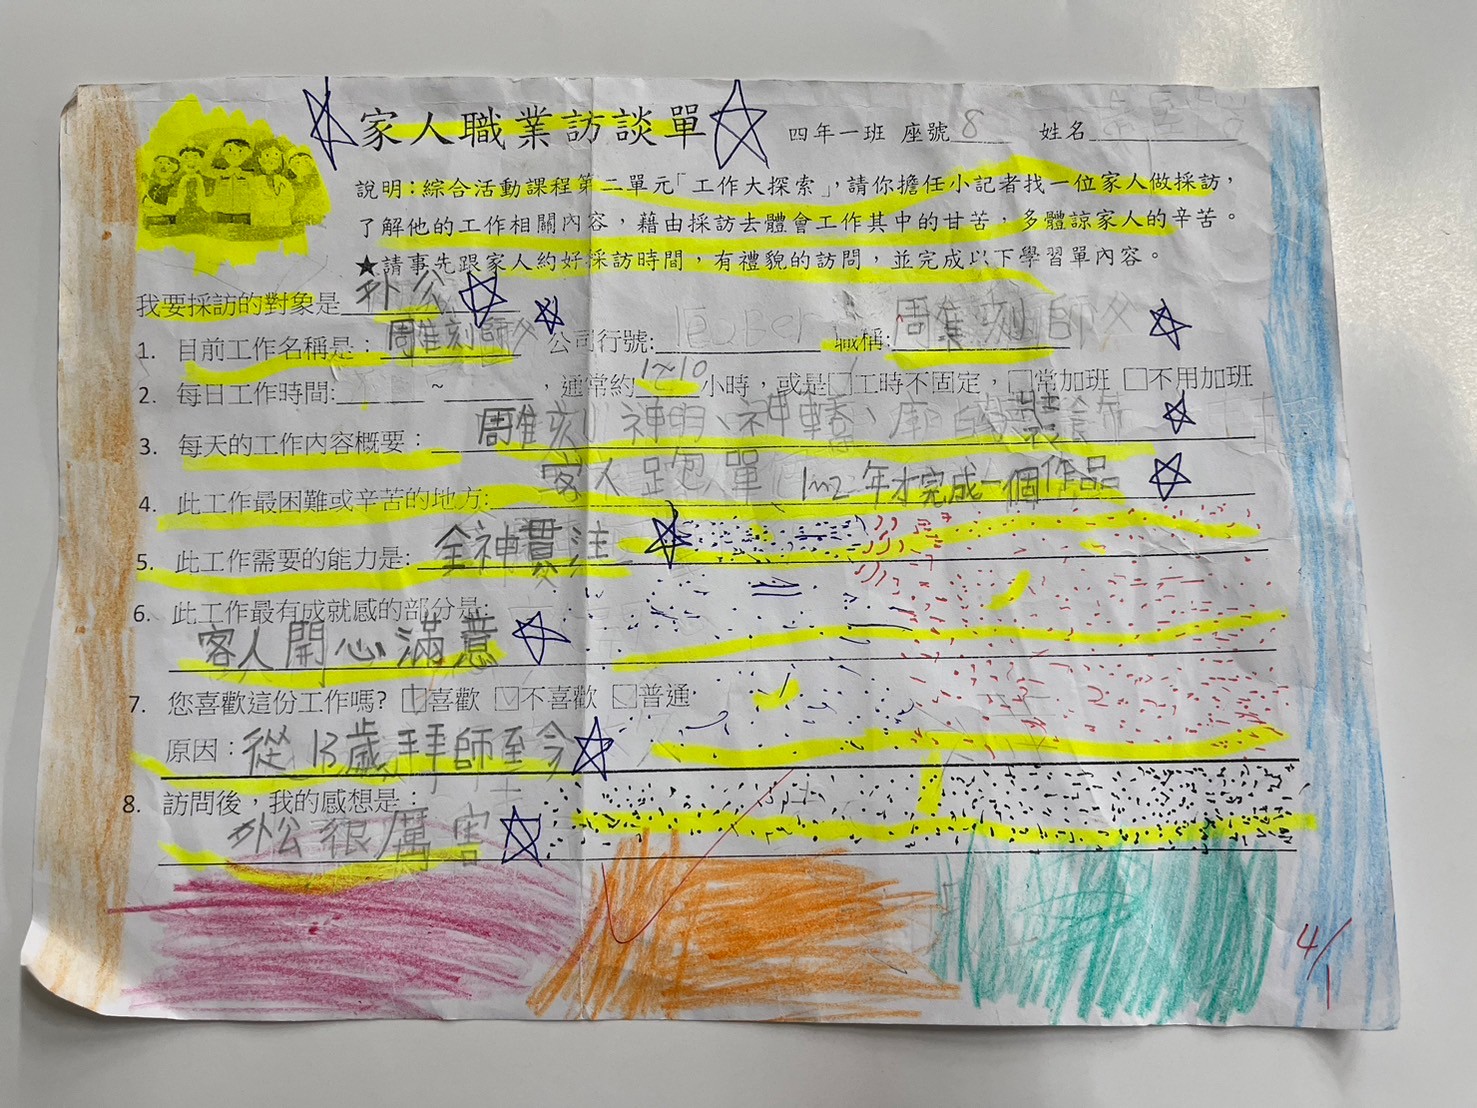 家人職業訪談單 四年一班 座號 8 姓名
說明：綜合活動課程第二單元「工作大探索」，請你擔任小記者找一位家人做採訪，
了解他的工作相關內容，藉由採訪去體會工作其中的甘苦，多體諒家人的辛苦。
★請事先跟家人約好採訪時間，有禮貌的訪問，並完成以下學習單內容。
我要採訪的對象是 外公
1. 目前工作名稱是：周隹刻師父 公司行號: 職稱: 周隹刻師父
2. 每日工作時間: ~ ，通常約 1~10 小時，或是□工時不固定，□常加班 □不用加班
3. 每天的工作內容概要：周隹刻 神明、神轎、
4. 此工作最困難或辛苦的地方: 客人跑單 1~2年才完成一個作品
5. 此工作需要的能力是: 全神貫注
6. 此工作最有成就感的部分是:
客人開心滿意
7. 您喜歡這份工作嗎? □喜歡 □不喜歡 □普通
原因：從13歲拜師至今
8. 訪問後，我的感想是：
外公很厲害
4/1